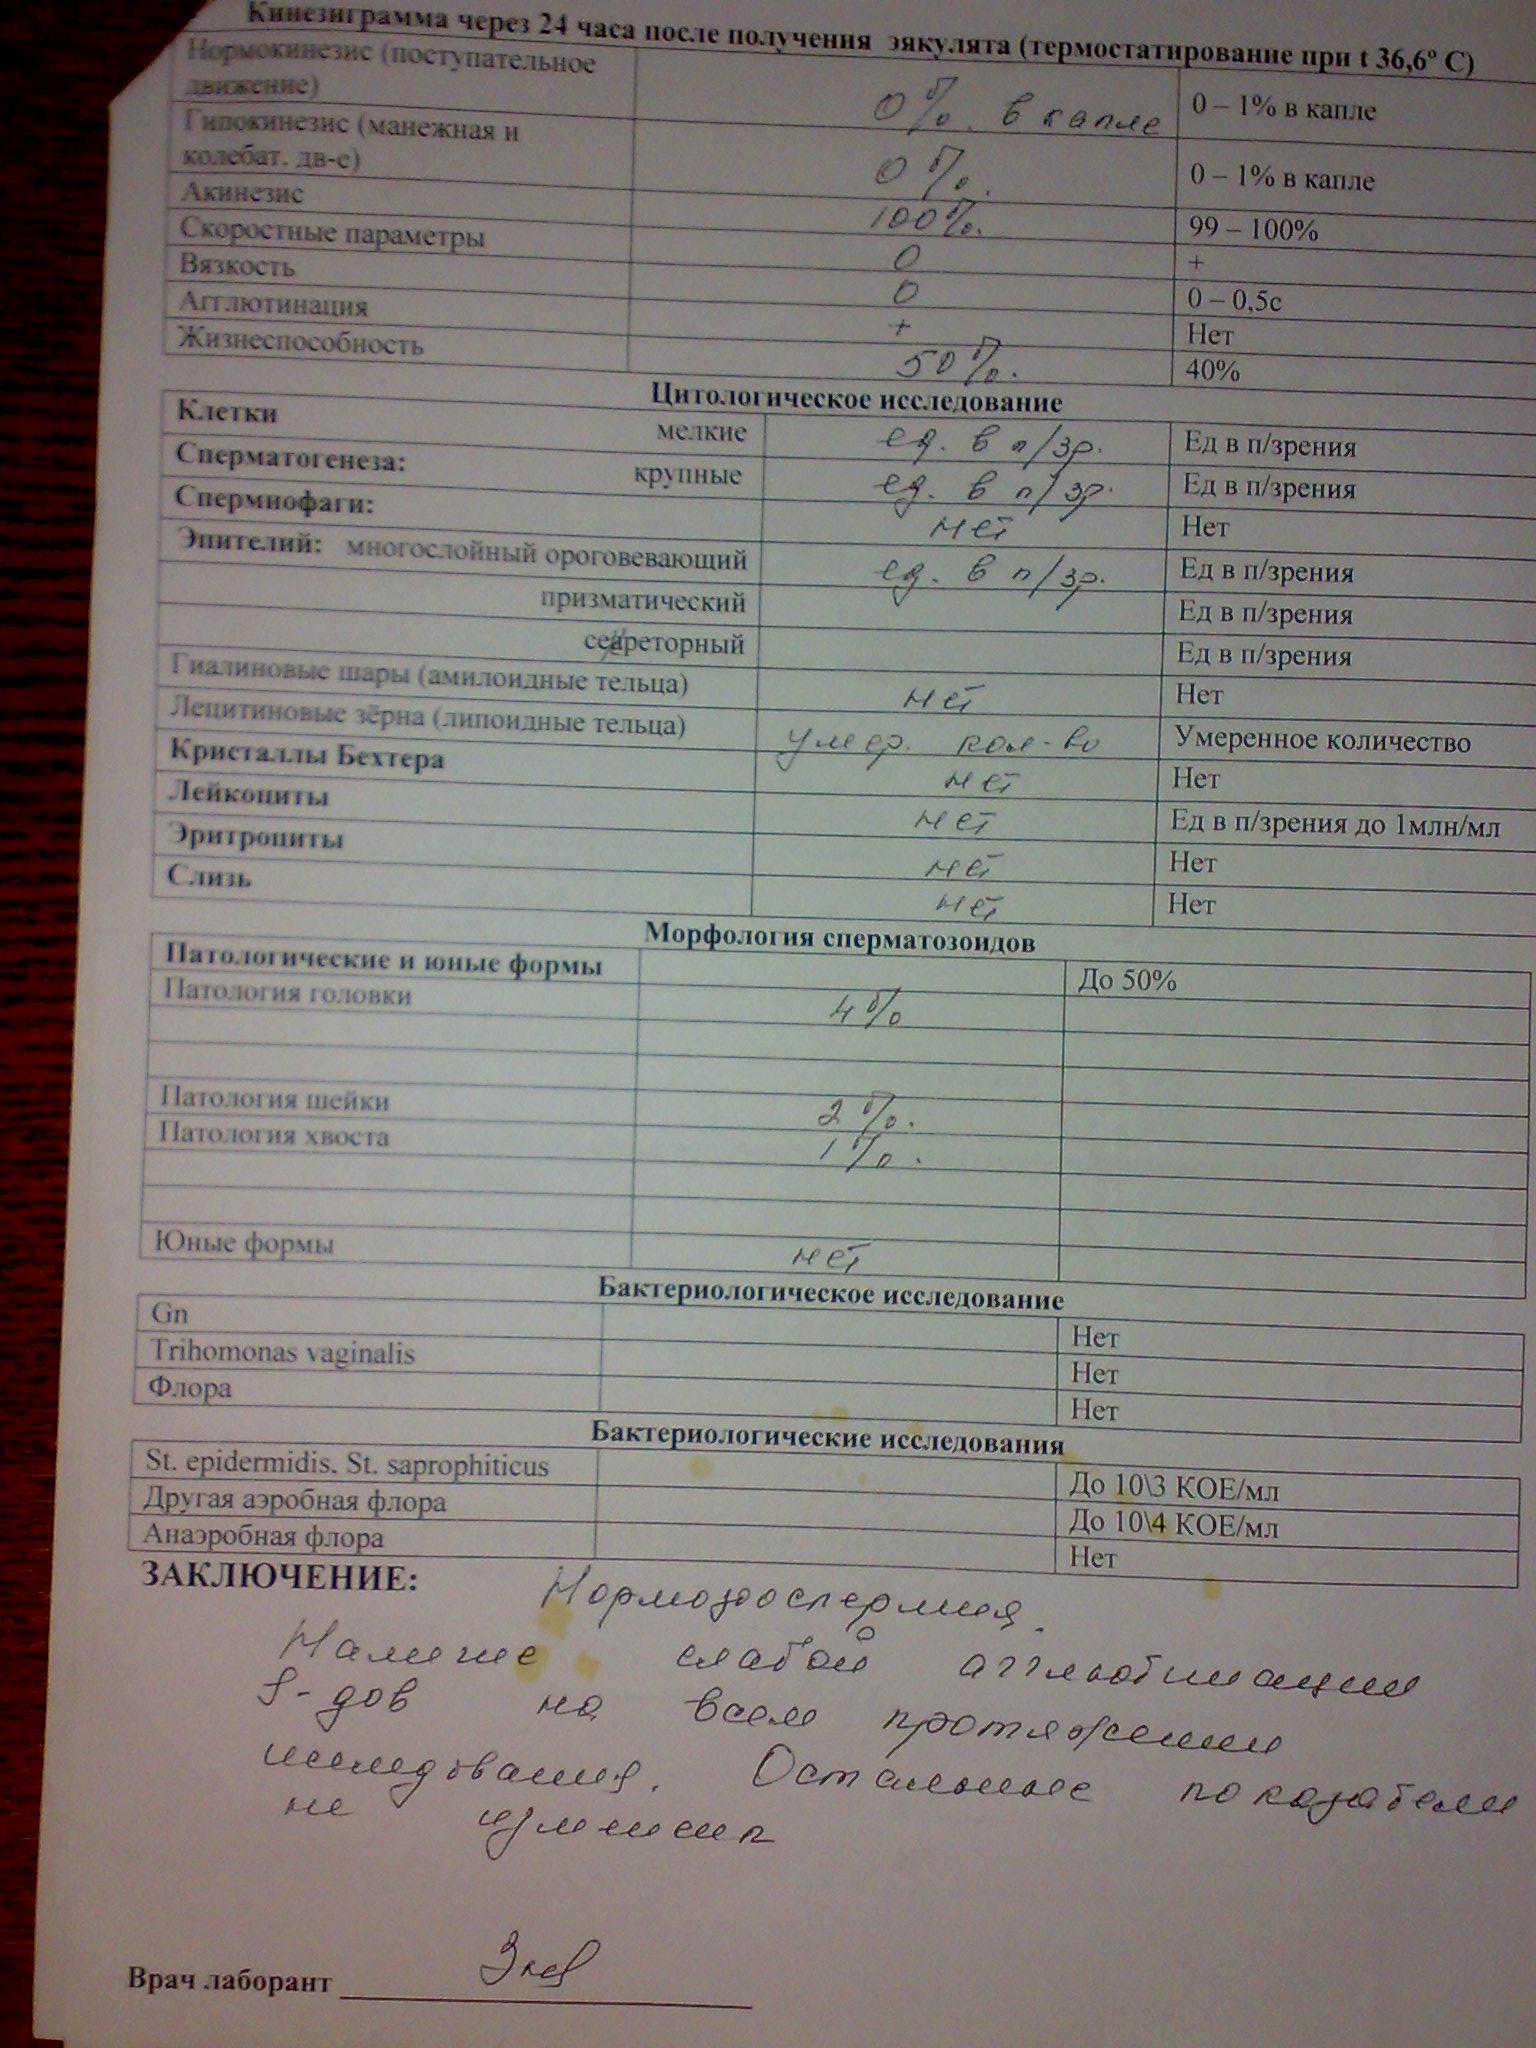 Кинезиграмма через 24 часа после получения эякулята (термостатирование при t 36,6º С)
Нормокинезис (поступательное движение) 0% в капле 0 – 1% в капле
Гипокинезис (манежная и колебат. дв-е) 0%. 0 – 1% в капле
Акинезис 100%. 99 – 100%
Скоростные параметры 0 +
Вязкость 0 0 – 0,5с
Агглютинация + Нет
Жизнеспособность 50%. 40%
Цитологическое исследование
Клетки мелкие ед. в п/зр. Ед в п/зрения
Сперматогенеза: крупные ед. в п/зр. Ед в п/зрения
Спермиофаги: нет Нет
Эпителий: многослойный ороговевающий ед. в п/зр. Ед в п/зрения
призматический Ед в п/зрения
секреторный Ед в п/зрения
Гиалиновые шары (амилоидные тельца) нет Нет
Лецитиновые зёрна (липоидные тельца) умер. кол-во Умеренное количество
Кристаллы Бехтера нет Нет
Лейкоциты нет Ед в п/зрения до 1млн/мл
Эритроциты нет Нет
Слизь нет Нет
Морфология сперматозоидов
Патологические и юные формы До 50%
Патология головки 4%
Патология шейки 2%.
Патология хвоста 1%.
Юные формы нет
Бактериологическое исследование
Gn Нет
Trihomonas vaginalis Нет
Флора Нет
Бактериологические исследования
St. epidermidis, St. saprophiticus До 10\3 КОЕ/мл
Другая аэробная флора До 10\4 КОЕ/мл
Анаэробная флора Нет
ЗАКЛЮЧЕНИЕ: Нормозооспермия.
Наличие слабой агглютинации
S-дов на всем протяжении
исследования. Остальные показатели
не изменены
Врач лаборант